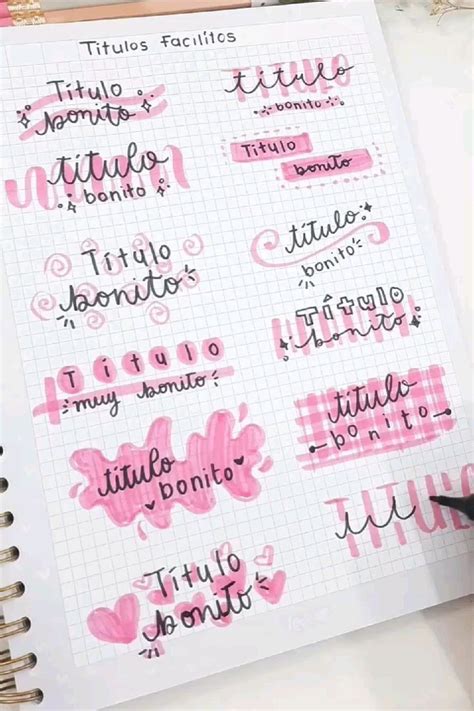 Titulos Facilitos
Título
bonito
título
bonito
Título
bonito
Título
muy bonito
título
bonito
Título
bonito
TITULO
título
bonito
Título
bonito
título
bonito
Título
bonito
título
bonito
TITUL